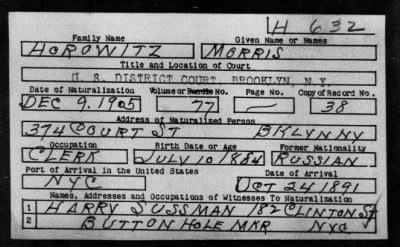 H 632
Family Name Given Name or Names
HOROWITZ MORRIS
Title and Location of Court
U. S. DISTRICT COURT, BROOKLYN, N.Y.
Date of Naturalization Volume or Bundle No. Page No. Copy of Record No.
DEC 9, 1905 77 — 38
Address of Naturalized Person
374 COURT ST BKLYN NY
Occupation Birth Date or Age Former Nationality
CLERK JULY 10 1884 RUSSIAN
Port of Arrival in the United States Date of Arrival
NYC OCT 24 1891
Names, Addresses and Occupations of Witnesses To Naturalization
1 HARRY SUSSMAN 182 CLINTON ST
2 BUTTON HOLE MKR NYC